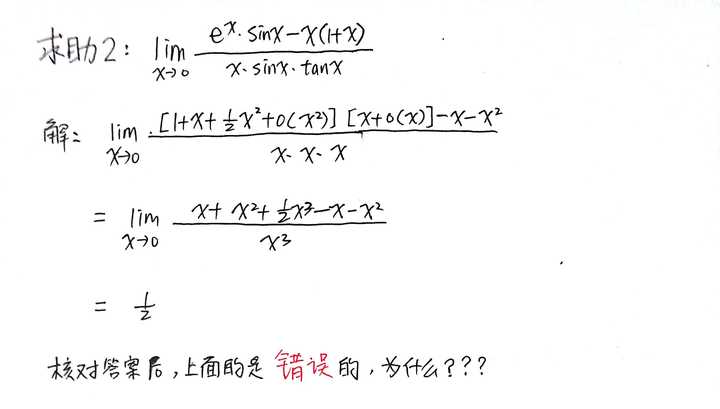 求助2: lim x→0 (e^x·sinx-x(1+x))/(x·sinx·tanx)
解: lim x→0 ([1+x+1/2x²+o(x²)][x+o(x)]-x-x²)/(x·x·x)
= lim x→0 (x+x²+1/2x³-x-x²)/x³
= 1/2
核对答案后,上面的是错误的,为什么???